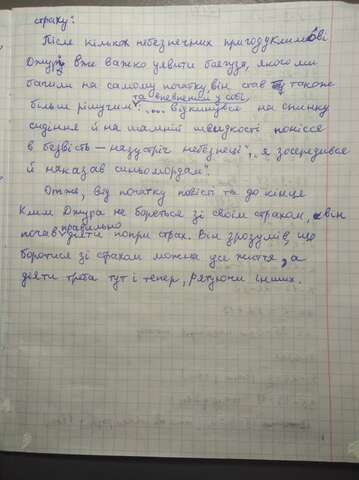 страху:
Після кількох небезпечних пригод уклимові
Джурі вже важко уявити боягуза, якого ми
бачили на самому початку, він став також
та впевненим у собі
більш рішучим: "... відкинувся на спинку
сидіння й на шаленій швидкості понісся
в безвість – назустріч небезпеці", "я зосередився
й наказав синьомордам".
Отже, від початку повісті та до кінця
Клим Джура не бореться зі своїм страхом, він
правильно
почав діяти попри страх. Він зрозумів, що
боротися зі страхом можна усе життя, а
діяти треба тут і тепер, рятуючи інших.